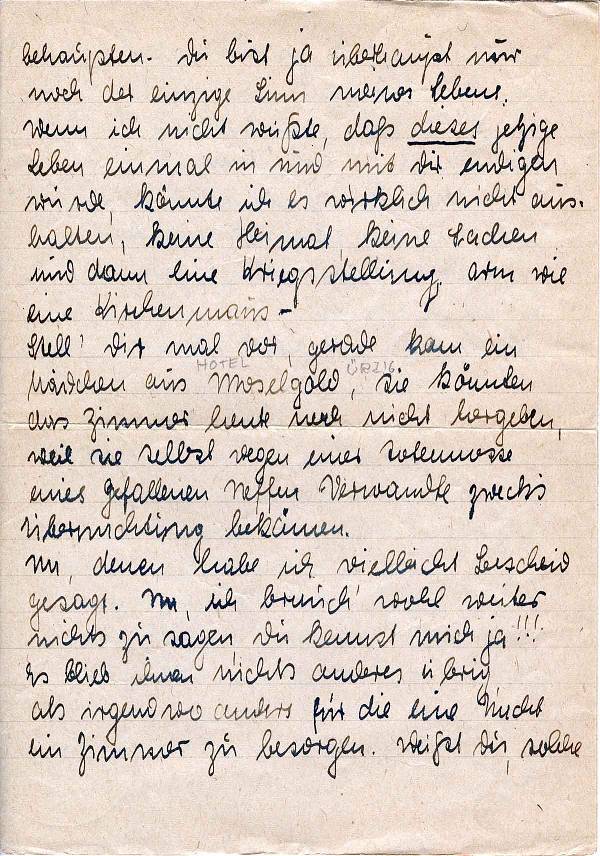 behaupten. Du bist ja überhaupt nur
noch der einzige Sinn meines Lebens.
Wenn ich nicht wüßte, daß dieses jetzige
Leben einmal in und mit dir endigen
würde, könnte ich es wirklich nicht aus-
halten, keine Heimat, keine Sachen
und dann eine Kriegsstellung, arm wie
eine Kirchenmaus –
Stell' dir mal vor, gerade kam ein
HOTEL
Mädchen aus Moselgold, sie könnten
das Zimmer heute noch nicht hergeben,
weil sie selbst wegen einer Totenmesse
eines gefallenen Neffen Verwandte zwecks
Übernachtung bekämen.
Nu, denen habe ich vielleicht Bescheid
gesagt. Nu, ich brauch' wohl weiter
nichts zu sagen, du kennst mich ja!!!
Es blieb ihnen nichts anderes übrig
als irgendwo anders für die eine Nacht
ein Zimmer zu besorgen. Weißt du, solche